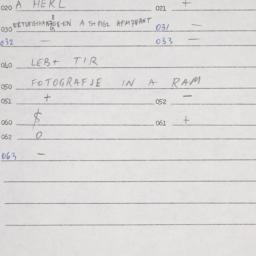 020 A HERL 021 +
030 031 -
032 - 033 -
040 LEB+ TIR
050 FOTOGRAFJE IN A RAM
051 + 052 -
060 $ 061 +
062 0
063 -